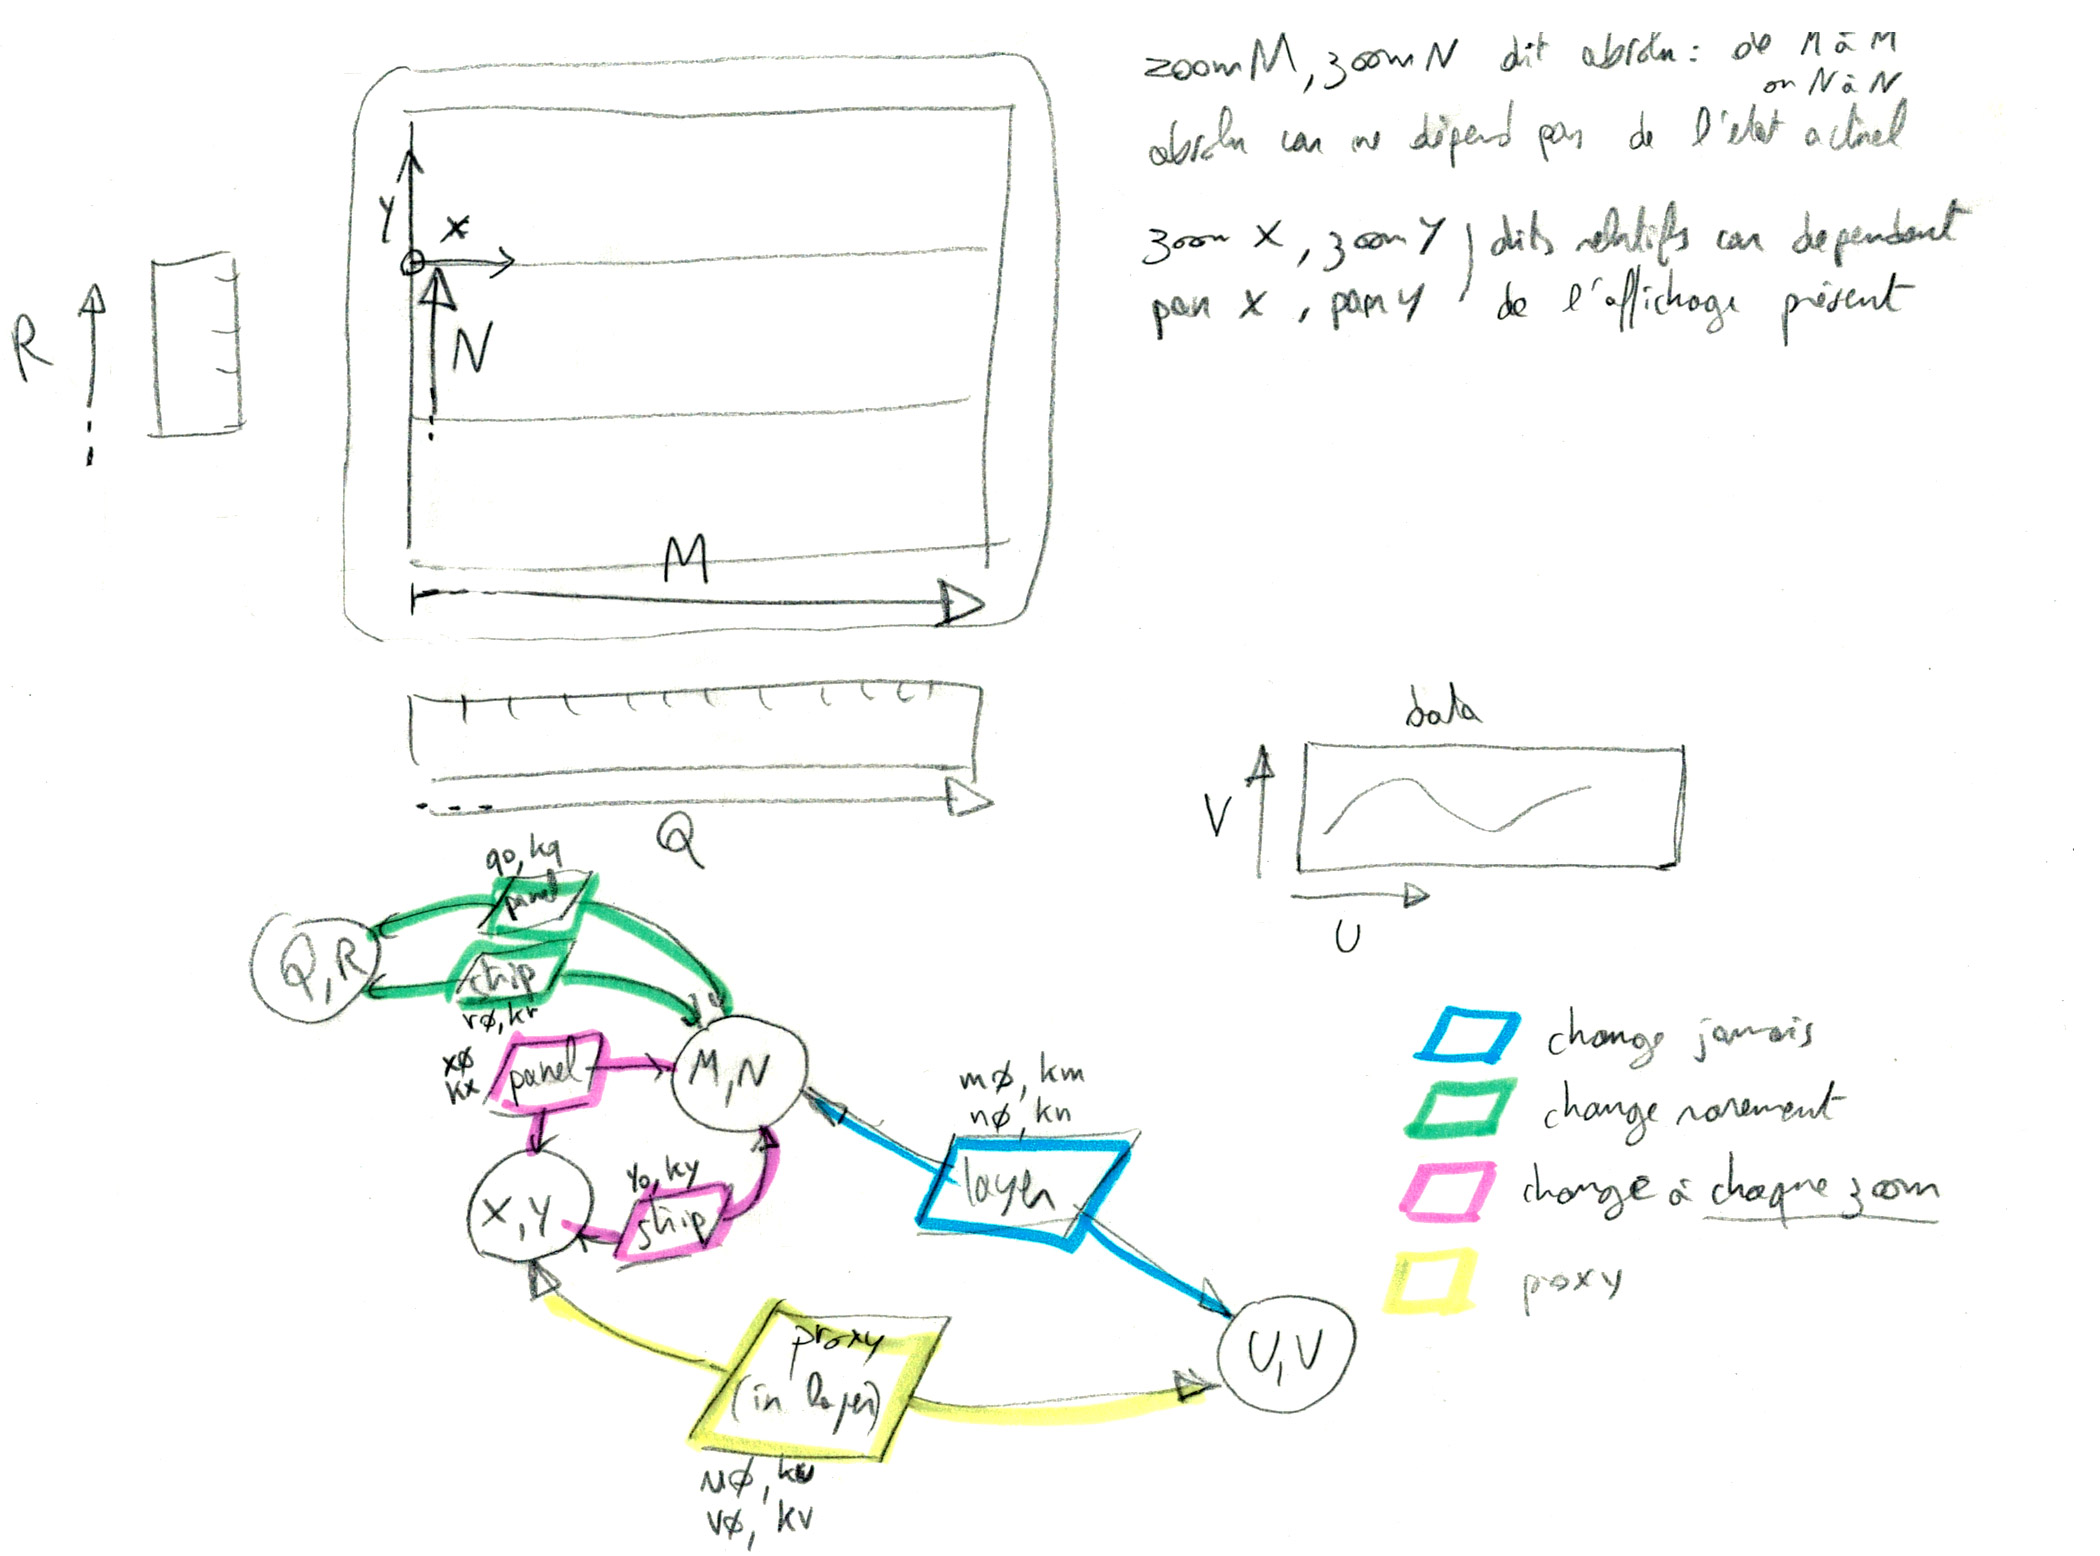 zoom M, zoom N dit absolu : de M à M
ou N à N
absolu car ne dépend pas de l'état actuel
zoom X, zoom Y ) dits relatifs car dependent
pan X, pan Y ) de l'affichage présent
Y
X
R
N
M
Q
data
V
U
q0, kq
panel
Q, R
strip
rø, kr
xø
kx
panel
M, N
mø, km
nø, kn
layer
X, Y
y0, ky
strip
U, V
proxy
(in layer)
uø, ku
vø, kv
change jamais
change rarement
change à chaque zoom
proxy